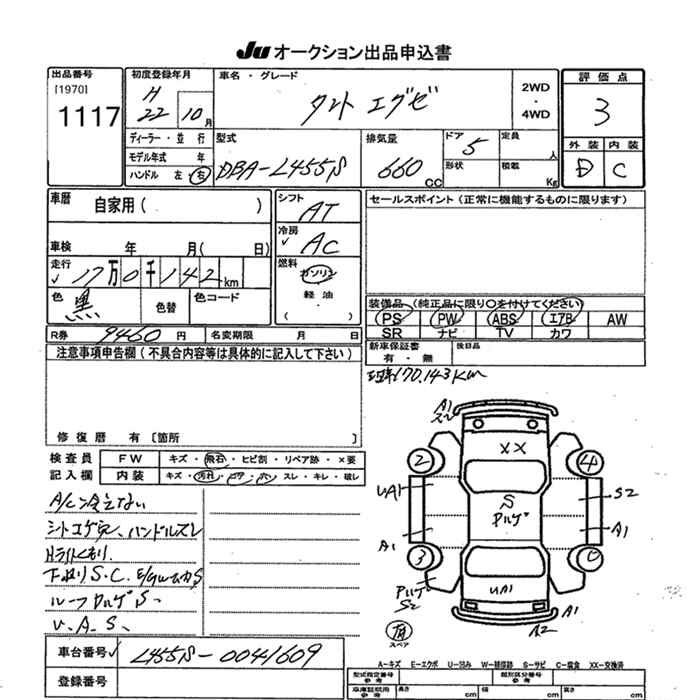 JU オークション出品申込書
出品番号 初度登録年月 車名・グレード 評価点
[1970] H 2WD
1117 22 10月 タント エグゼ ・ 3
4WD
ディーラー・並行 型式 排気量 ドア 定員 外装 内装
モデル年式 年 5 人
ハンドル 左・右 DBA-L455S 660 CC 形状 積載 Kg D C
車歴 シフト セールスポイント (正常に機能するものに限ります)
自家用 ( ) AT
冷房
車検 年 月( 日) ✓ AC
走行 燃料
✓ 17万0千142km ガソリン
色 黒 色替 色コード 軽油
( ) 装備品 (純正品に限り○を付けてください)
PS PW ABS エアB AW
R券 9460円 名変期限 月 日 SR ナビ TV カワ
注意事項申告欄 (不具合内容等は具体的に記入して下さい) 新車保証書 後日品
有・無
170,143Km
修復歴 有 [箇所
検査員 FW キズ・飛石・ヒビ割・リペア跡・×要
記入欄 内装 キズ・汚れ・コゲ・穴・スレ・キレ・破レ
A/C冷えない
シートコゲ穴、ハンドルスレ
Hライトくもり
下回りS.C.
ルーフ S.
U.A.S.
A1
XX
2 4
UA1 S S2
A1 A1
3
S2 UA1
A1
A2
スペア
車台番号 ✓ L455S-0041609
登録番号
A-キズ E-エクボ U-凹み W-補修跡 S-サビ C-腐食 XX-交換済
型式指定番号 参考 類別区分番号 参考
車庫証明用 参考 長さ cm 幅 cm 高さ cm